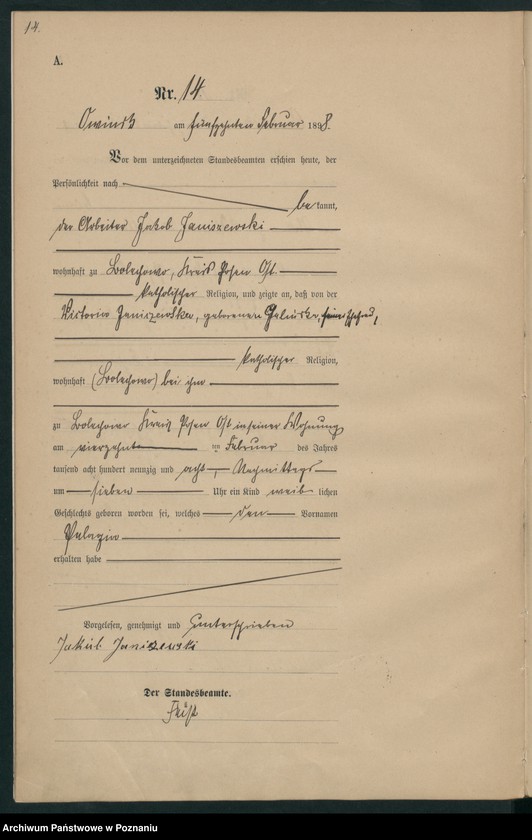 14.
A.
Nr. 14
Owinsk am fünfzehnten Februar 1898.
Vor dem unterzeichneten Standesbeamten erschien heute, der
Persönlichkeit nach
be kannt,
der Arbeiter Jakob Janiszewski
wohnhaft zu Bolechowo, Kreis Posen Ost
katholischer Religion, und zeigte an, daß von der
Victoria Janiszewska, geborenen seiner Ehefrau,
katholischer Religion,
wohnhaft (Bolechowo) bei ihm
zu Bolechowo Kreis Posen Ost in seiner Wohnung
am vierzehnten Februar des Jahres
tausend acht hundert neunzig und acht, Nachmittags
um sieben Uhr ein Kind weib lichen
Geschlechts geboren worden sei, welches den Vornamen
Pelagia
erhalten habe
Vorgelesen, genehmigt und unterschrieben
Jakub Janiszewski
Der Standesbeamte.
Archiwum Państwowe w Poznaniu